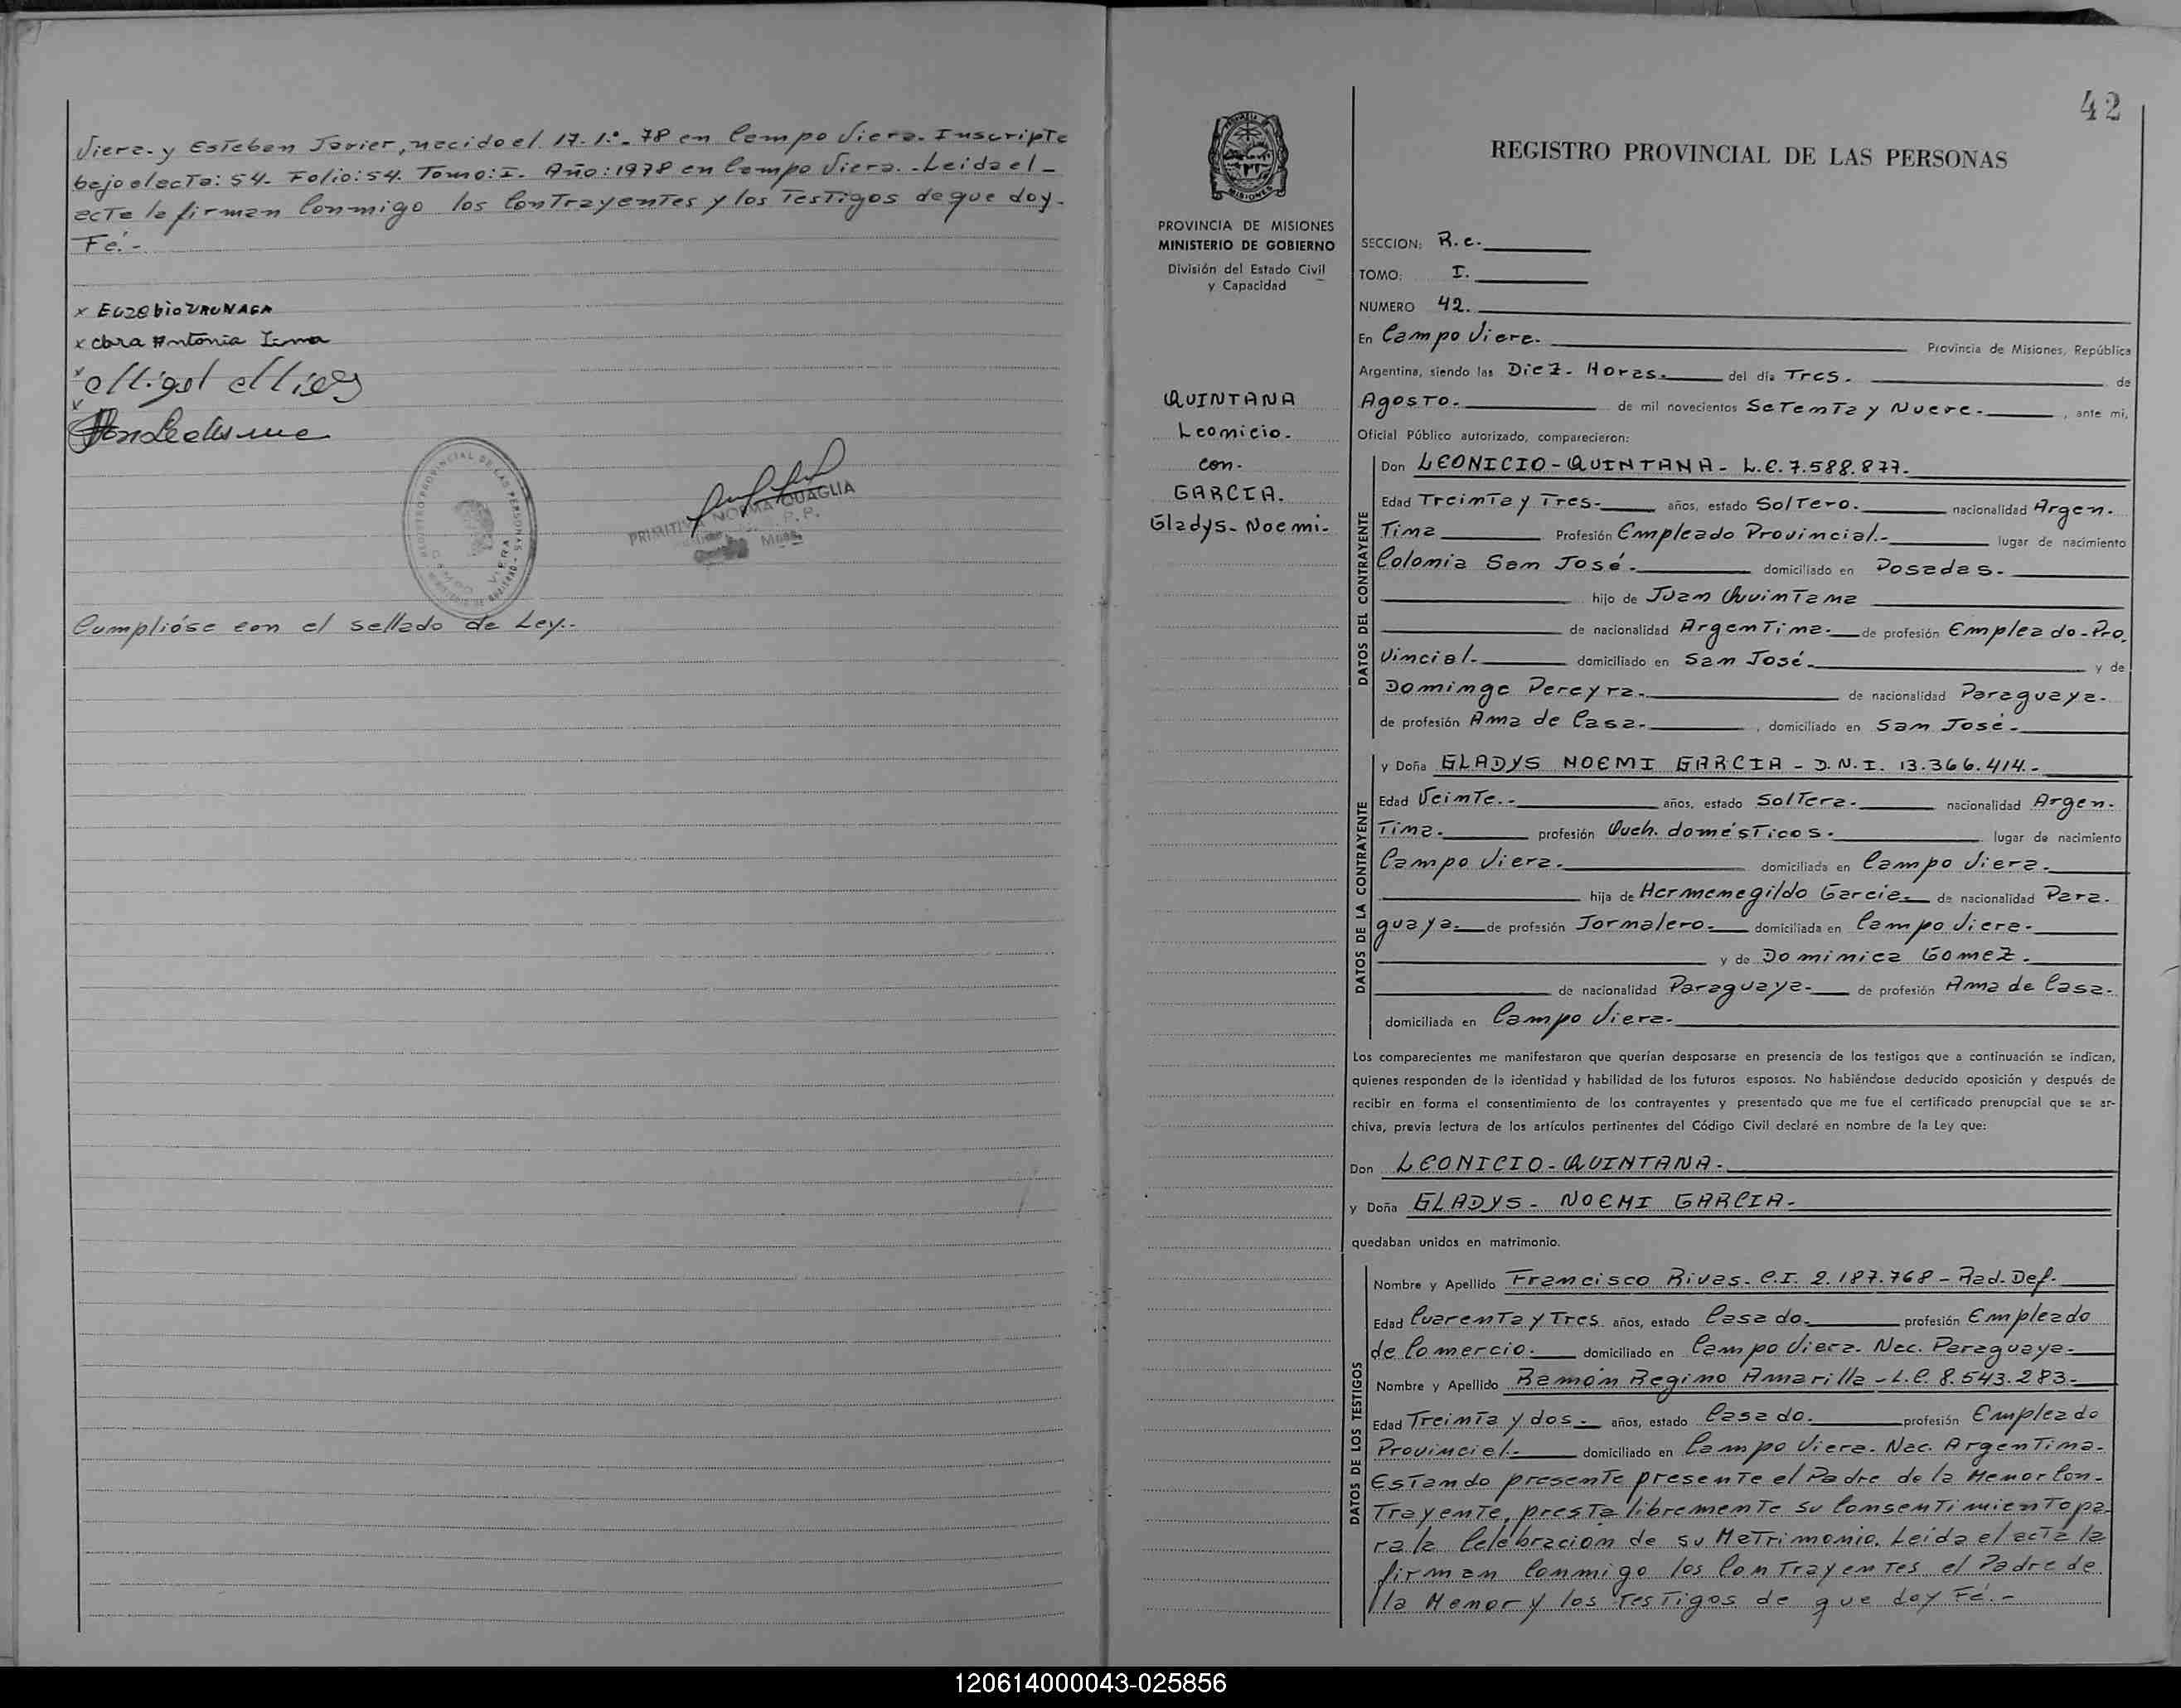 Viera. y Esteban Javier, nacido el 17. 1º. 78 en Campo Viera. Inscripto
bajo el acta: 54. Folio: 54. Tomo: I. Año: 1978 en Campo Viera. - Leida el -
acta la firman Conmigo los Contrayentes y los Testigos de que doy -
Fé. -
x Euzebio URUNAGA
x clara Antonia Lima
PRIMITIVA NORMA QUAGLIA
Cumplióse con el sellado de Ley.-
42
REGISTRO PROVINCIAL DE LAS PERSONAS
PROVINCIA DE MISIONES
MINISTERIO DE GOBIERNO
División del Estado Civil
y Capacidad
QUINTANA
Leonicio.
con.
GARCIA.
Gladys- Noemi-
SECCION: R. c.
TOMO: I.
NUMERO 42.
En Campo Viera. Provincia de Misiones, República
Argentina, siendo las Diez. Horas. del día Tres. de
Agosto. de mil novecientos SeTenTa y Nueve. , ante mi,
Oficial Público autorizado, comparecieron:
DATOS DEL CONTRAYENTE
Don LEONICIO - QUINTANA - L.E. 7.588.877.
Edad TreinTa y Tres. años, estado SolTero. nacionalidad Argen.
Tina Profesión Empleado Provincial.- lugar de nacimiento
Colonia San José. domiciliado en Posadas.
hijo de Juan QuinTana
de nacionalidad ArgenTina. de profesión Empleado-Pro.
vincial. domiciliado en San José. y de
Dominga Pereyra. de nacionalidad Paraguaya.
de profesión Ama de Casa. , domiciliado en San José.
DATOS DE LA CONTRAYENTE
y Doña GLADYS NOEMI GARCIA - D.N.I. 13.366.414.-
Edad VeinTe.- años, estado SolTera. nacionalidad Argen.
Tina. profesión Queh. domésTicos. lugar de nacimiento
Campo Viera. domiciliada en Campo Viera.
hija de Hermenegildo Garcia. de nacionalidad Para.
guaya. de profesión Jornalero. domiciliada en Campo Viera.
y de Dominica Gomez.
de nacionalidad Paraguaya. de profesión Ama de Casa.
domiciliada en Campo Viera.
Los comparecientes me manifestaron que querían desposarse en presencia de los testigos que a continuación se indican,
quienes responden de la identidad y habilidad de los futuros esposos. No habiéndose deducido oposición y después de
recibir en forma el consentimiento de los contrayentes y presentado que me fue el certificado prenupcial que se ar-
chiva, previa lectura de los artículos pertinentes del Código Civil declaré en nombre de la Ley que:
Don LEONICIO - QUINTANA.
y Doña GLADYS - NOEMI GARCIA.
quedaban unidos en matrimonio.
DATOS DE LOS TESTIGOS
Nombre y Apellido Francisco Rivas. C.I. 2.187.768 - Rad. Def.
Edad CuarenTa y Tres años, estado Casado. profesión Empleado
de Comercio. domiciliado en Campo Viera. Nac. Paraguaya.
Nombre y Apellido Ramón Regino Amarilla - L.E. 8.543.283.
Edad TreinTa y dos. años, estado Casado. profesión Empleado
Provincial. domiciliado en Campo Viera. Nac. ArgenTina.
ESTando presenTe presenTe el Padre de la Menor Con-
TrayenTe, presTa libremenTe su ConsenTimienTo pa-
ra la Celebracion de su MaTrimonio. Leída el acTa la
firman Conmigo los ConTrayenTes el Padre de
la Menor y los TesTigos de que doy Fé. -
120614000043-025856